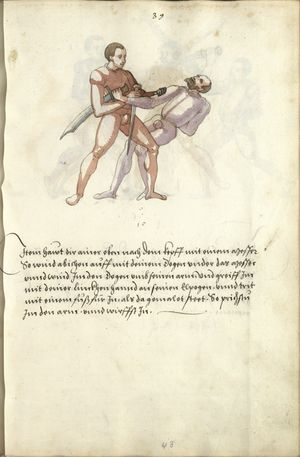 39
Item hawt dir ainer oben nach dem kopff mit ainem messer
So wind abichen auff mit deinem Degen under das messer
unnd wind Im den Degen umb seinen arm. Und greiff Im
mit deiner linnckhen hannd an seinen Elpogen. unnd trit
mit ainem fuß für In. als da gemalet steet. So prichstu
Im den arm. unnd wirffst In.
48